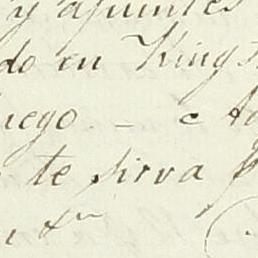 y apuntes
do en Kings
uego - e
te sirva